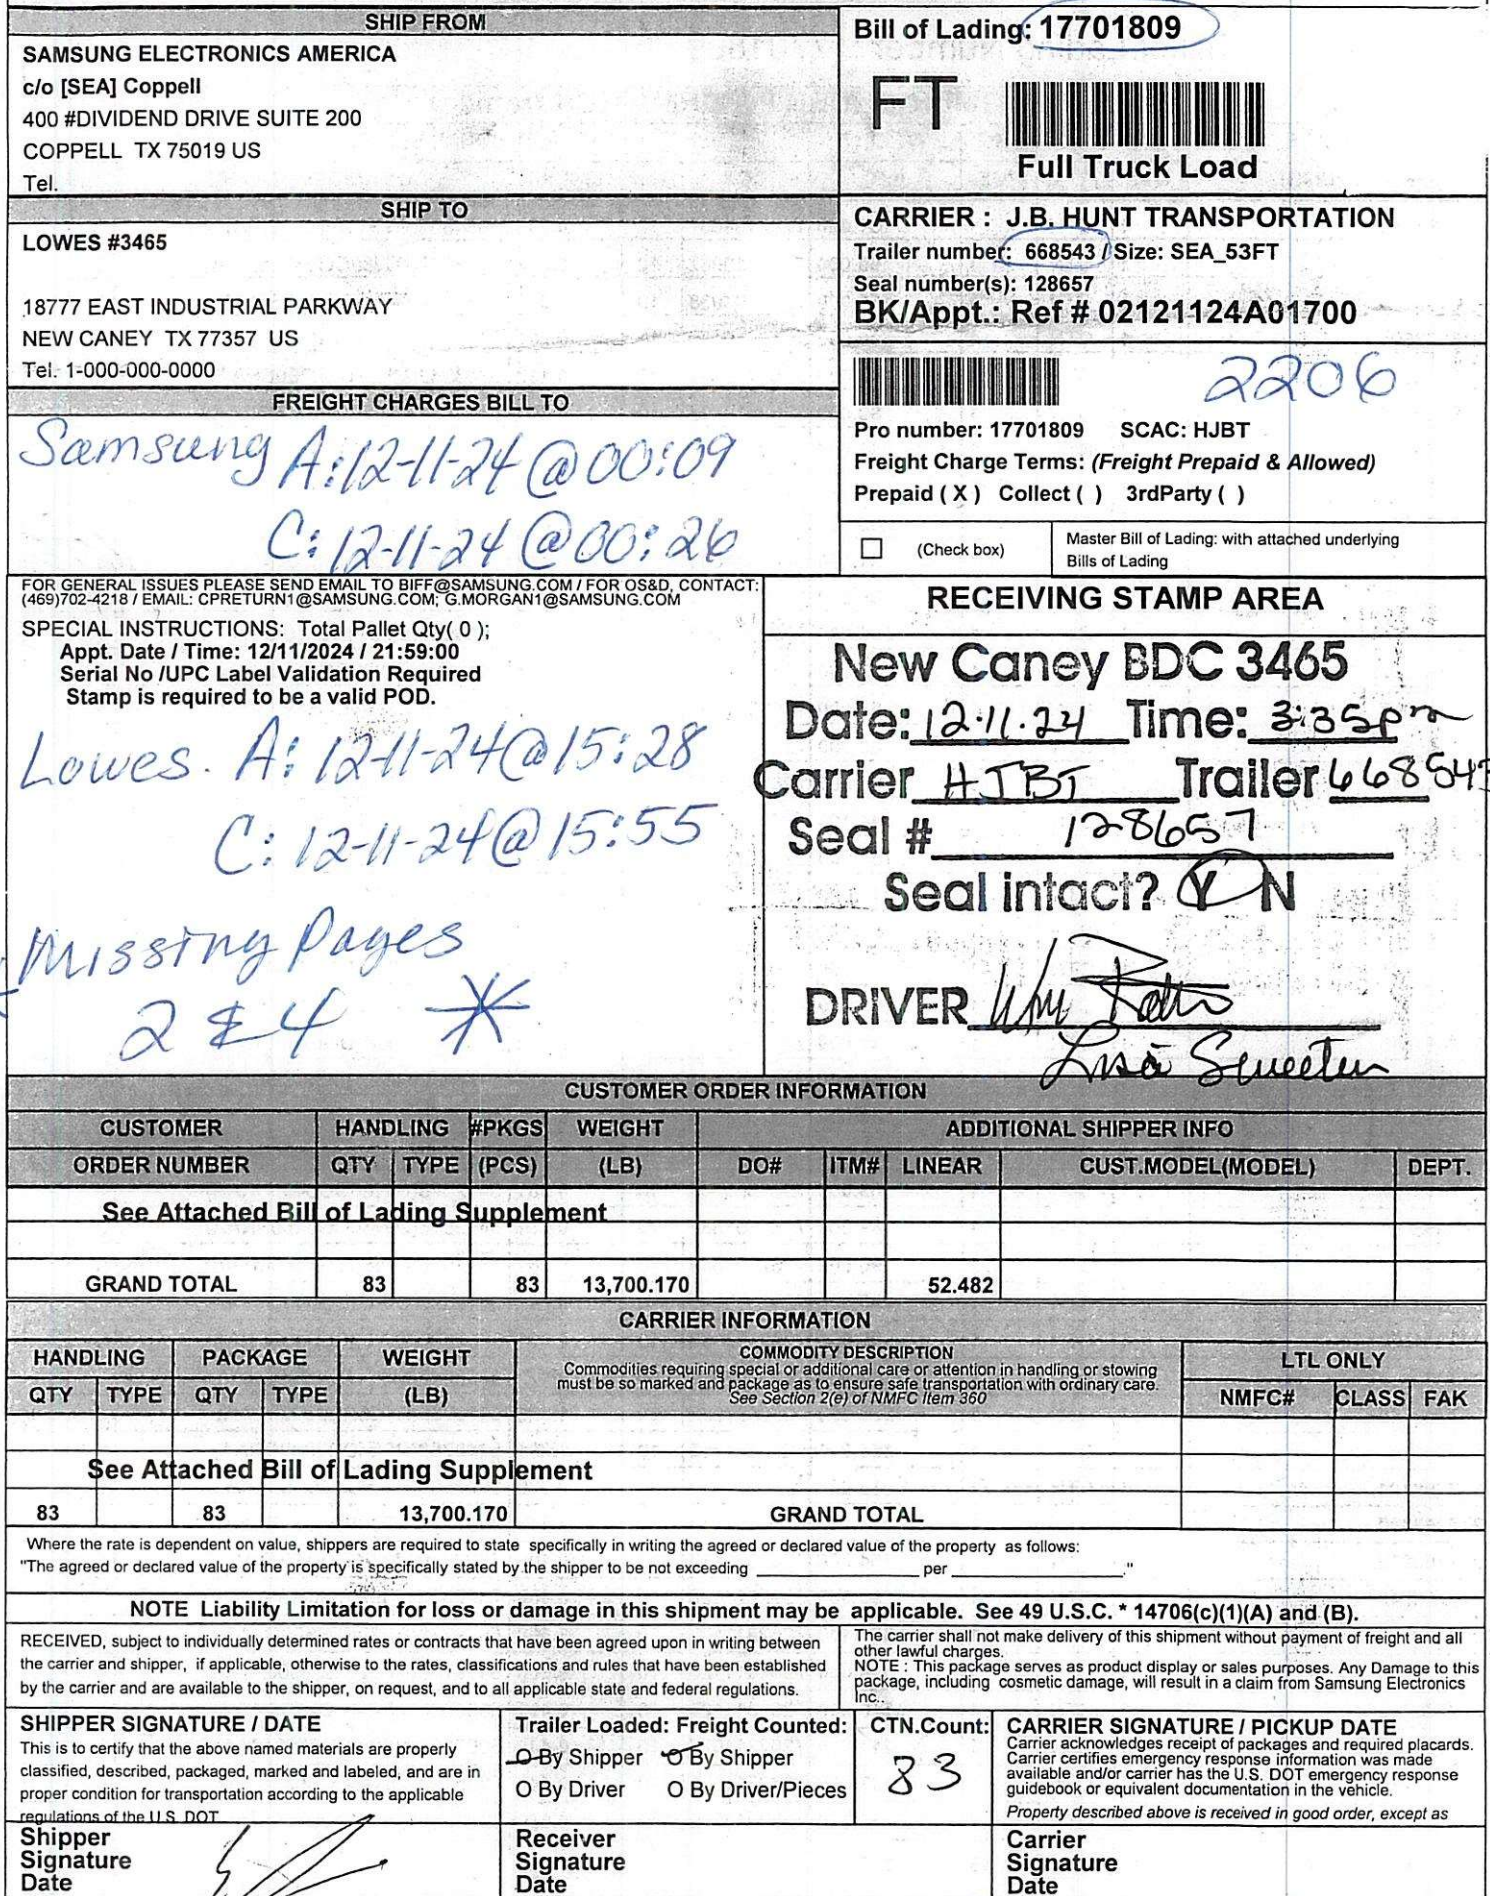 SHIP FROM
SAMSUNG ELECTRONICS AMERICA
c/o [SEA] Coppell
400 #DIVIDEND DRIVE SUITE 200
COPPELL TX 75019 US
Tel.
Bill of Lading: 17701809
FT
Full Truck Load
SHIP TO
LOWES #3465
18777 EAST INDUSTRIAL PARKWAY
NEW CANEY TX 77357 US
Tel. 1-000-000-0000
CARRIER : J.B. HUNT TRANSPORTATION
Trailer number: 668543 / Size: SEA_53FT
Seal number(s): 128657
BK/Appt.: Ref # 02121124A01700
2206
Pro number: 17701809 SCAC: HJBT
Freight Charge Terms: (Freight Prepaid & Allowed)
Prepaid ( X ) Collect ( ) 3rdParty ( )
(Check box)
Master Bill of Lading: with attached underlying
Bills of Lading
FREIGHT CHARGES BILL TO
Samsung A:12-11-24 @00:09
C: 12-11-24 @00:26
FOR GENERAL ISSUES PLEASE SEND EMAIL TO BIFF@SAMSUNG.COM / FOR OS&D, CONTACT:
(469)702-4218 / EMAIL: CPRETURN1@SAMSUNG.COM; G.MORGAN1@SAMSUNG.COM
SPECIAL INSTRUCTIONS: Total Pallet Qty( 0 );
Appt. Date / Time: 12/11/2024 / 21:59:00
Serial No /UPC Label Validation Required
Stamp is required to be a valid POD.
Lowes. A: 12-11-24@15:28
C: 12-11-24@15:55
Missing Pages
2 & 4 *
RECEIVING STAMP AREA
New Caney BDC 3465
Date: 12.11.24 Time: 3:35pm
Carrier HJBT Trailer 668543
Seal # 128657
Seal intact? Y N
DRIVER
Lisa Sweeten
CUSTOMER ORDER INFORMATION
CUSTOMER HANDLING #PKGS WEIGHT ADDITIONAL SHIPPER INFO
ORDER NUMBER QTY TYPE (PCS) (LB) DO# ITM# LINEAR CUST.MODEL(MODEL) DEPT.
See Attached Bill of Lading Supplement
GRAND TOTAL 83 83 13,700.170 52.482
CARRIER INFORMATION
HANDLING PACKAGE WEIGHT COMMODITY DESCRIPTION LTL ONLY
Commodities requiring special or additional care or attention in handling or stowing
must be so marked and package as to ensure safe transportation with ordinary care.
See Section 2(e) of NMFC Item 360
QTY TYPE QTY TYPE (LB) NMFC# CLASS FAK
See Attached Bill of Lading Supplement
83 83 13,700.170 GRAND TOTAL
Where the rate is dependent on value, shippers are required to state specifically in writing the agreed or declared value of the property as follows:
"The agreed or declared value of the property is specifically stated by the shipper to be not exceeding ____________ per ____________."
NOTE Liability Limitation for loss or damage in this shipment may be applicable. See 49 U.S.C. * 14706(c)(1)(A) and (B).
RECEIVED, subject to individually determined rates or contracts that have been agreed upon in writing between
the carrier and shipper, if applicable, otherwise to the rates, classifications and rules that have been established
by the carrier and are available to the shipper, on request, and to all applicable state and federal regulations.
The carrier shall not make delivery of this shipment without payment of freight and all
other lawful charges.
NOTE : This package serves as product display or sales purposes. Any Damage to this
package, including cosmetic damage, will result in a claim from Samsung Electronics
Inc..
SHIPPER SIGNATURE / DATE
This is to certify that the above named materials are properly
classified, described, packaged, marked and labeled, and are in
proper condition for transportation according to the applicable
regulations of the U.S. DOT
Trailer Loaded: Freight Counted:
O By Shipper O By Shipper
O By Driver O By Driver/Pieces
CTN.Count:
83
CARRIER SIGNATURE / PICKUP DATE
Carrier acknowledges receipt of packages and required placards.
Carrier certifies emergency response information was made
available and/or carrier has the U.S. DOT emergency response
guidebook or equivalent documentation in the vehicle.
Property described above is received in good order, except as
Shipper
Signature
Date
Receiver
Signature
Date
Carrier
Signature
Date